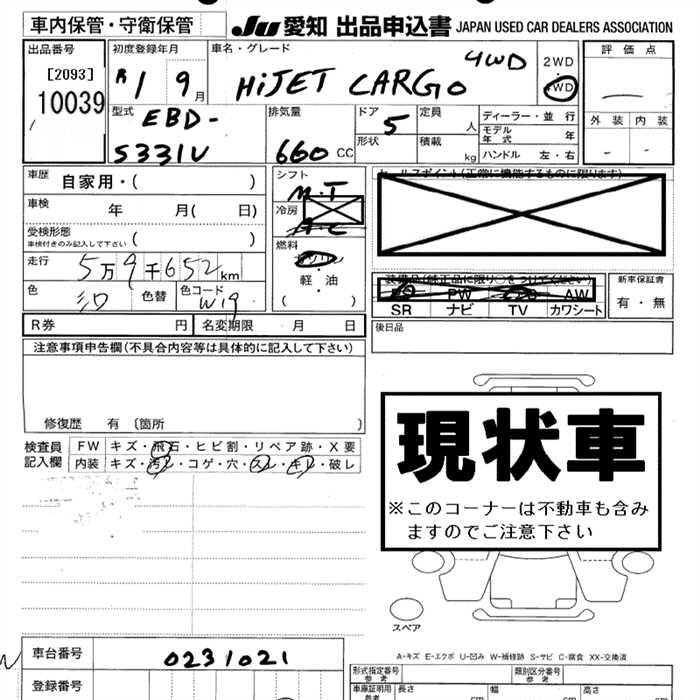 車内保管・守衛保管
JU 愛知 出品申込書 JAPAN USED CAR DEALERS ASSOCIATION
出品番号
[2093]
10039
初度登録年月
R1 9月
車名・グレード
HiJET CARGO 4WD
2WD
4WD
評価点
外装 内装
型式
EBD-
S331V
排気量
660 CC
ドア
5
形状
定員
人
積載
kg
ディーラー・並行
モデル年式 年
ハンドル 左・右
車歴 自家用・( )
車検 年 月( 日)
受検形態
車検付きのみ記入して下さい ( )
走行 5万9千652km
色 シロ 色替
色コード
W19
シフト
M.T
冷房
A-C
燃料
ガソリン
・
軽・油
( )
セールスポイント(正常に機能するものに限ります)
装備品(純正品に限り○をつけてください)
PW AW
SR ナビ TV カワシート
新車保証書
有・無
R券 円
名変期限 月 日
後日品
注意事項申告欄(不具合内容等は具体的に記入して下さい)
修復歴 有 〔箇所 〕
検査員
記入欄
FW キズ・飛石・ヒビ割・リペア跡・X要
内装 キズ・汚レ・コゲ・穴・スレ・キレ・破レ
現状車
※このコーナーは不動車も含み
ますのでご注意下さい
スペア
A-キズ E-エクボ U-凹み W-補修跡 S-サビ C-腐食 XX-交換済
車台番号 0231021
登録番号
形式指定番号
類別区分番号
参考
参考
車庫証明用
参考
長さ cm
幅 cm
高さ cm